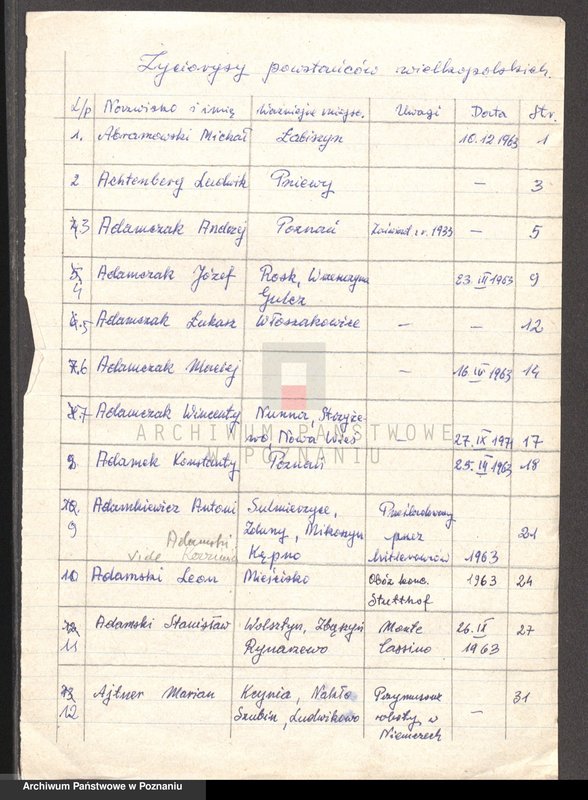 Życiorysy powstańców wielkopolskich.
L/p Nazwisko i imię Ważniejsze miejsc. Uwagi Data Str.
1. Abramowski Michał Łabiszyn 10.12.1963 1
2 Achtenberg Ludwik Pniewy — 3
3 Adamczak Andrzej Poznań z r. 1933 — 5
4 Adamczak Józef Rosk, Wrzeszczyna 23.III 1963 9
Gulcz
5 Adamczak Łukasz Włoszakowice — — 12
6 Adamczak Maciej — 16 IV 1963 14
7 Adamczak Wincenty Nunna, Strzyże-
wo, Nowa Wieś — 27.IX 1971 17
8 Adamek Konstanty Poznań 25.IV 1963 18
9 Adamkiewicz Antoni Sulmierzyce, Prześladowany
Zduny, Mikorzyn przez 21
Kępno hitlerowców 1963
Adamski
vide Kazimierz
10 Adamski Leon Mieścisko Obóz konc. 1963 24
Stutthof
11 Adamski Stanisław Wolsztyn, Zbąszyń Monte 26.IX 27
Rynarzewo Cassino 1963
12 Ajtner Marian Kcynia, Nakło Przymusowe 31
Szubin, Ludwikowo roboty w —
Niemczech
ARCHIWUM PAŃSTWOWE
W POZNANIU
Archiwum Państwowe w Poznaniu